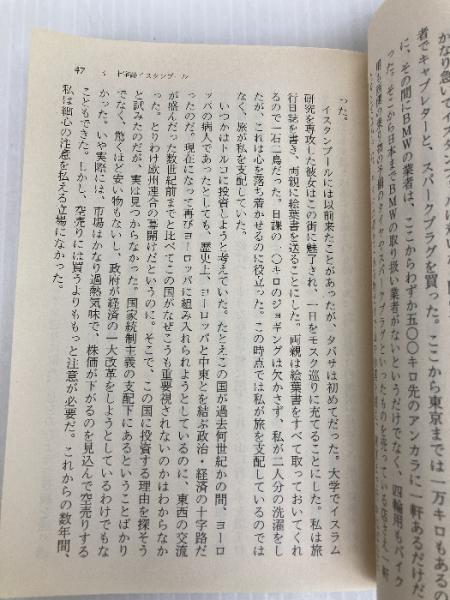 かなり急いでイスタンブールに
者でキャブレターと、スパークプラグを買った。ここから東京までは一万キロもあるの
に、その間にBMWの業者は、ここからわずか五〇〇キロ先のアンカラに一軒あるだけだ
った。そこから日本までBMWの取り扱い業者がないというだけでなく、四輪用もバイク
47 十字路イスタンブール
った。
イスタンブールには以前来たことがあったが、タバサは初めてだった。大学でイスラム
研究を専攻した彼女はこの街に魅了され、一日をモスク巡りに充てることにした。私は旅
行日誌を書き、両親に絵葉書を送ることにした。両親は絵葉書をすべて取っておいてくれ
るので一石二鳥だった。日課の一〇キロのジョギングは欠かさず、私が二人分の洗濯をし
たが、これは心を落ち着かせるのに役立った。この時点では私が旅を支配しているのでは
なく、旅が私を支配していた。
いつかはトルコに投資しようと考えていた。たとえこの国が過去何世紀かの間、ヨーロ
ッパの病人であったとしても、歴史上、ヨーロッパと中東とを結ぶ政治・経済の十字路だ
ったのだ。現在になって再びヨーロッパに組み入れられようとしているのに、東西の交流
が盛んだった数世紀前までと比べてこの国がなぜこうも重要視されないのかはわからなか
った。とりわけ欧州連合の幕開けだというのに。そこで、この国に投資する理由を探そう
と試みたのだが、実は見つからなかった。国家統制主義の支配下にあるということばかり
でなく、驚くほど安い物もないし、政府が経済の一大改革をしようとしているわけでもな
かった。いや実際には、市場はかなり過熱気味で、株価が下がるのを見込んで空売りする
こともできた。しかし、空売りには買うよりももっと注意が必要だ。これからの数年間、
私は細心の注意を払える立場になかった。